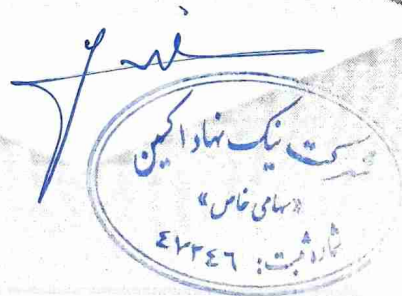 شرکت نیک نهاد اکسین
«سهامی خاص»
شماره ثبت: ٤٧٢٤٦